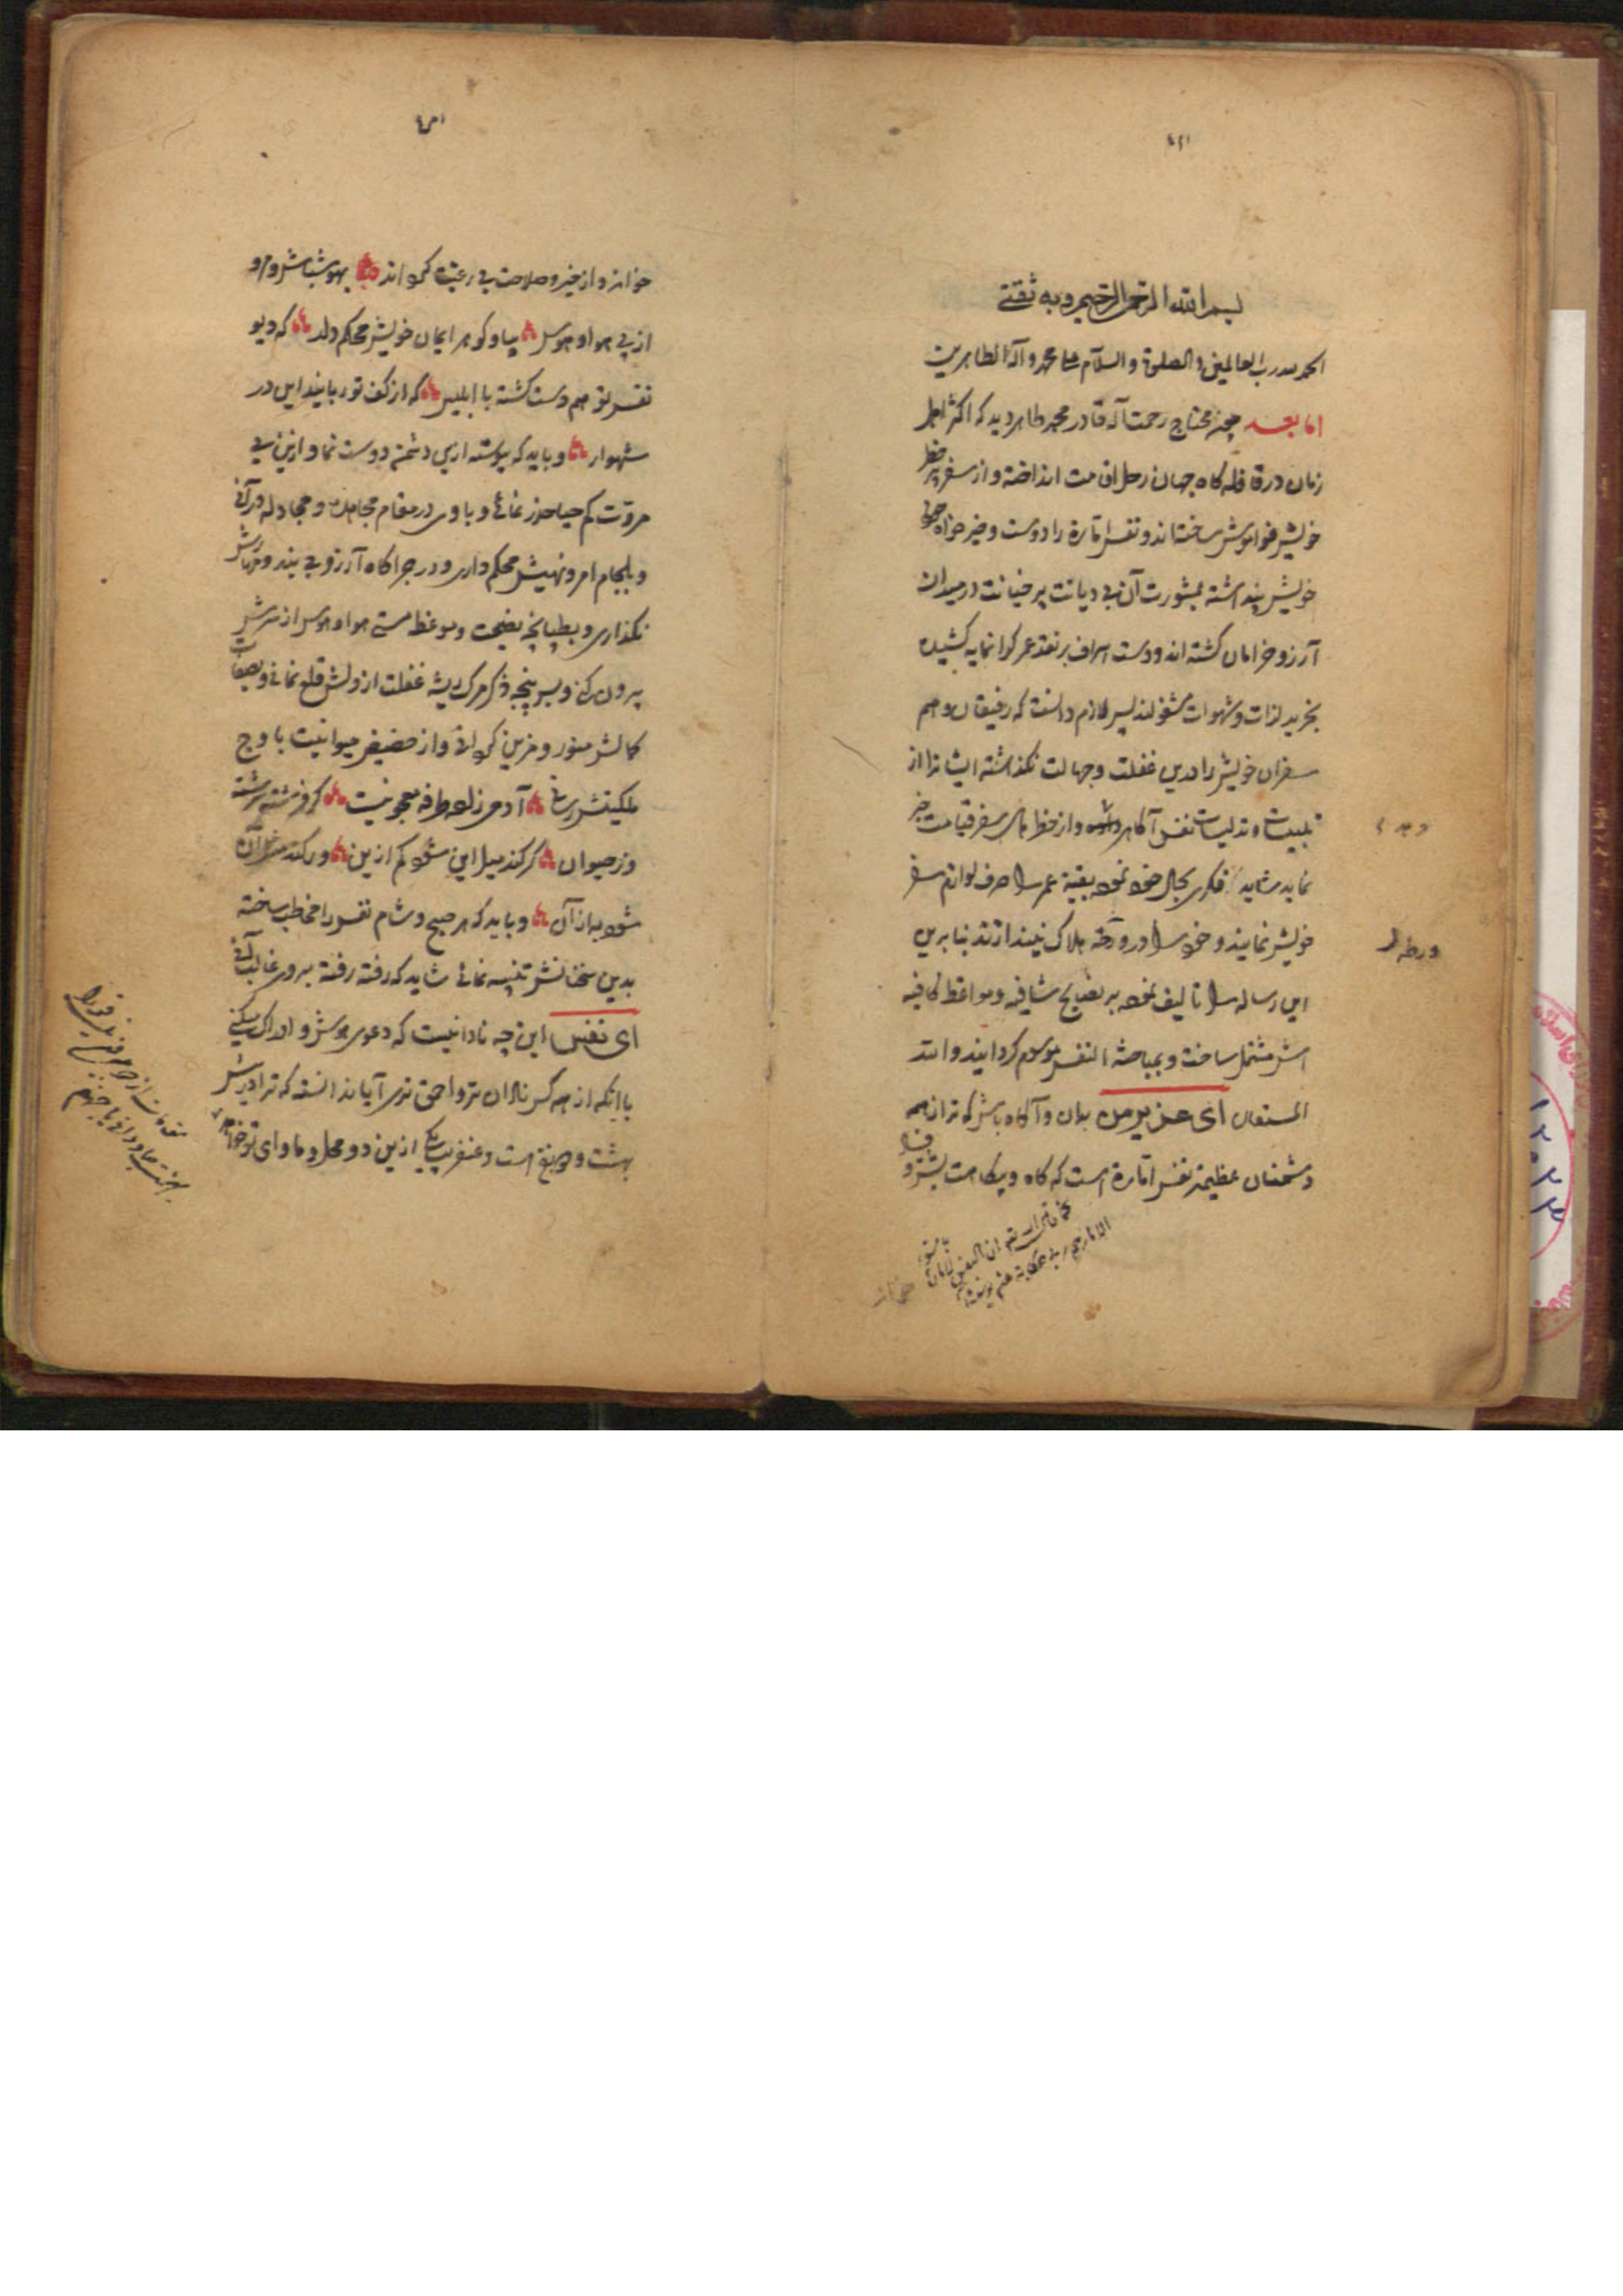 بسم الله الرحمن الرحیم و به ثقتی
الحمد لله رب العالمین و الصلوة و السلام علی محمد و آله الطاهرین
اما بعد چون محتاج رحمت آله قادر محمد طاهر دید که اکثر اهل
زمان در قافله کاه جهان رحل اقامت انداخته و از سفر پر خطر
خویش فراموش ساخته‌اند و نفس اماره را دوست و خیر خواه
خویش پنداشته بمشورت آن بی دیانت پر خیانت در میدان
آرزو خرامان کشته اند و دست اسراف بر نقد عمر کرانمایه کشیده
بخرید لذات و شهوات مشغولند پس لازم دانست که رفیقان و هم
سفران خویش را درین غفلت و جهالت نکذاشته ایشانرا از
تلبیسات و تدلیسات نفس آکاه و از خطرهای سفر قیامت خبر
نماید شاید فکری بحال خود نموده بقیه عمر را صرف لوازم سفر
خویش نمایند و خود را در ورطه هلاک نیندازند بنا برین
ورطه
این رساله را تالیف نموده بر نصایح شافیه و مواعظ کافیه
اش مشتمل ساخت و بمباحثة النفس موسوم کردانید و الله
المستعان ای عزیز من بدان و آکاه باش که ترا از همه
دشمنان عظیمتر نفس اماره است که کاه و بیکاهت بشر و
خواند و از خیر و صلاحت بی رغبت کرداند بهوش باش و مرو
از پی هوا و هوس بیا و کوهر ایمان خویش محکم دار که دیو
نفس تو هم دست کشته با ابلیس که از کف تو ربایند این در
شهوار و باید که پیوسته ازین دشمن دوست نما و ازین بی
مروت کم حیا حذر نمائی و با وی در مقام مجاهده و مجادله درآئی
و بلجام امر و نهیش محکم داری و در چراکاه آرزو بی بند و مهارش
نکذاری و بطپانچه نصیحت و موعظه مستی هوا و هوس از سرش
بیرون کنی و بسر پنجه ذکر مرک ریشه غفلت از دلش قلع نمائی و بصفات
کمالش منور و مزین کردانی و از حضیض حیوانیت باوج
ملکیتش رسانی آدمی زاده طرفه معجونیست کز فرشته سرشته
وز حیوان کر کند میل این شود کم ازین ور کند میل آن
شود به از آن و باید که هر صبح و شام نفس را مخاطب ساخته
بدین سخنانش تنبیه نمائی شاید که رفته رفته بر وی غالب آئی
ای نفس این چه نادانیست که دعوی هوش و ادراک میکنی
با آنکه از همه کس نادان تر و احمق تری آیا ندانسته که ترا در پیش
بهشت و دوزخ است و عنقریب یکی ازین دو محل و ماوای تو خواهد